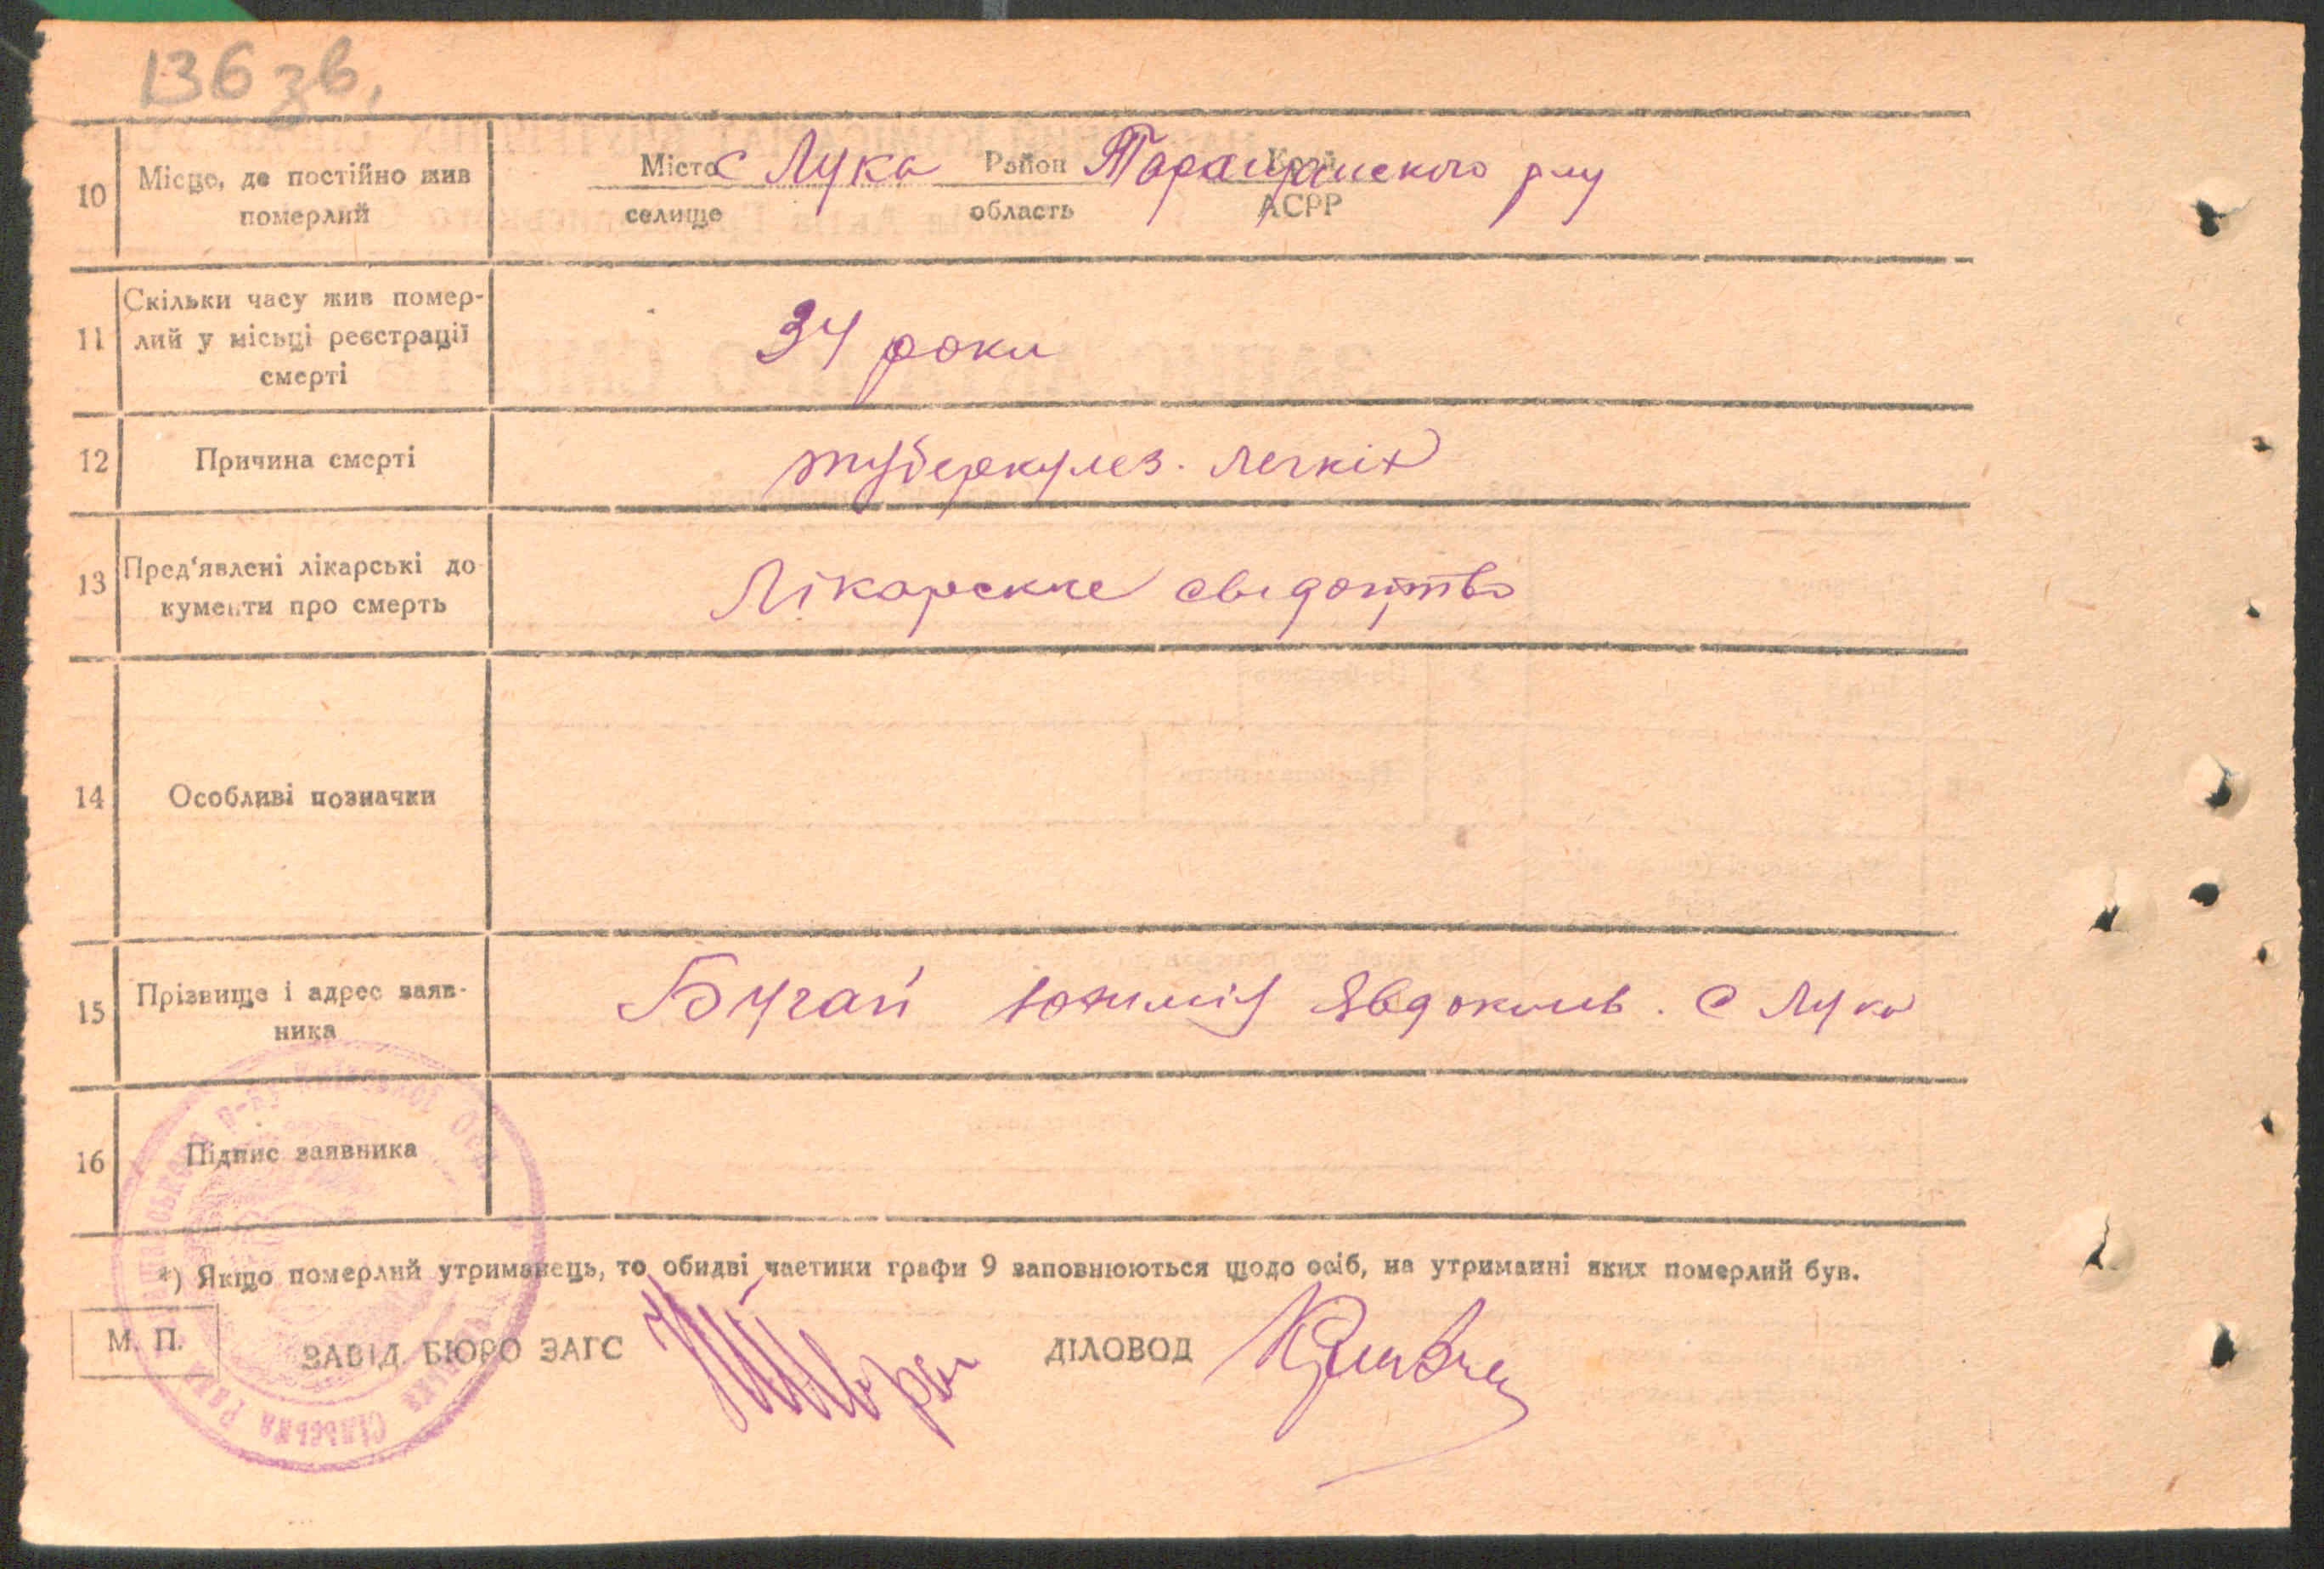 136 зв,
10 Місце, де постійно жив померлий
Місто с Лука Район Таращанського р-ну Край
селище область АСРР
11 Скільки часу жив помер-
лий у місьці реєстрації
смерті
34 роки
12 Причина смерті
туберкулез. легкіх
13 Пред'явлені лікарські до
кументи про смерть
Лікарскке свідоцтво
14 Особливі позначки
15 Прізвище і адрес заяв-
ника
Бугай Явдоким. с Лука
16 Підпис заявника
*) Якщо померлий утриманець, то обидві частини графи 9 заповнюються щодо осіб, на утриманні яких померлий був.
М. П.
ЗАВІД. БЮРО ЗАГС
ДІЛОВОД
р-ну Київської Обл.
Сільська Рада